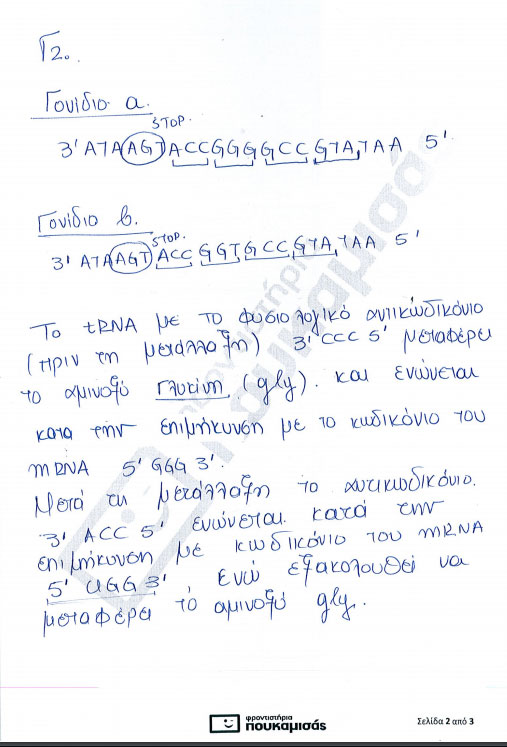 Γ2.
Γονίδιο α.
STOP.
3' ATAAGTACCGGGGCCGTATAA 5'
Γονίδιο b.
STOP.
3' ATAAGTACCGGTGCCGTATAA 5'
Το tRNA με το φυσιολογικό αντικωδικόνιο
(πριν τη μετάλλαξη) 3' CCC 5' μεταφέρει
το αμινοξύ γλυκίνη (gly). και ενώνεται
κατα την επιμήκυνση με το κωδικόνιο του
mRNA 5' GGG 3'.
Μετά τη μετάλλαξη το αντικωδικόνιο.
3' ACC 5' ενώνεται κατά την
επιμήκυνση με κωδικόνιο του mRNA
5' UGG 3', ενώ εξακολουθεί να
μεταφέρει το αμινοξύ gly.
φροντιστήρια
πουκαμισάς
Σελίδα 2 από 3